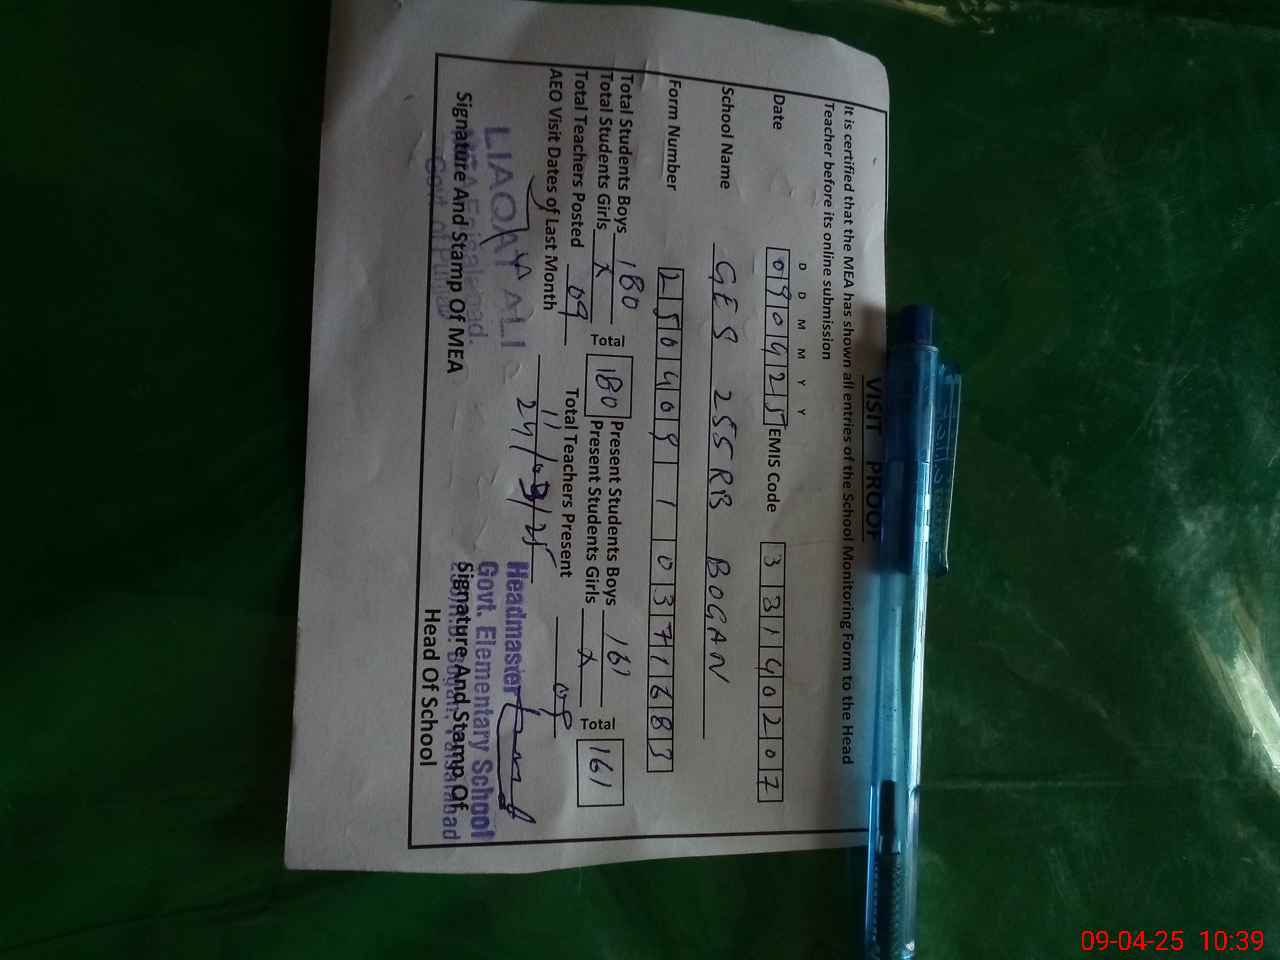 VISIT PROOF
It is certified that the MEA has shown all entries of the School Monitoring Form to the Head
Teacher before its online submission
D D M M Y Y
Date 090425 EMIS Code 33140207
School Name GES 255RB BOGAN
Form Number 250409110371683
Total Students Boys 180 Total 180 Present Students Boys 161 Total 161
Total Students Girls X Present Students Girls X
Total Teachers Posted 09 Total Teachers Present 09
AEO Visit Dates of Last Month 11 24/03/25
LIAQAT ALI
MEA Faisalabad.
Govt. of Punjab
Signature And Stamp Of MEA
Headmaster
Govt. Elementary School
255/R.B. Bogan, Faisalabad
Signature And Stamp Of
Head Of School
09-04-25 10:39